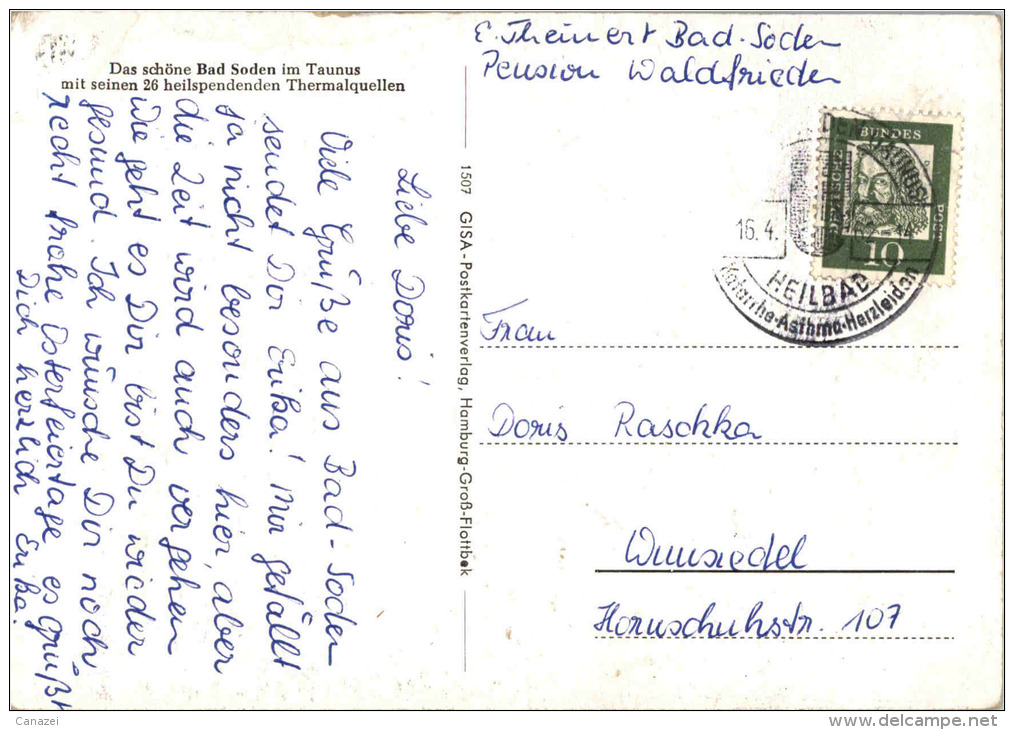 E. Theinert Bad-Soden
Pension Waldfrieden
Das schöne Bad Soden im Taunus
mit seinen 26 heilspendenden Thermalquellen
Liebe Doris!
Viele Grüße aus Bad-Soden
sendet Dir Erika! Mir gefällt
ja nicht besonders hier, aber
die Zeit wird auch vergehen
Wie geht es Dir bist Du wieder
gesund. Ich wünsche Dir noch
recht frohe Osterfeiertage es grüßt
Dich herzlich Erika.
1507 GISA-Postkartenverlag, Hamburg-Groß-Flottbek
DEUTSCHE BUNDESPOST
10
16.4.
HEILBAD
Katarrhe-Asthma-Herzleiden
Frau
Doris Raschka
Wunsiedel
Hornschuhstr. 107
Canazei
www.delcampe.net